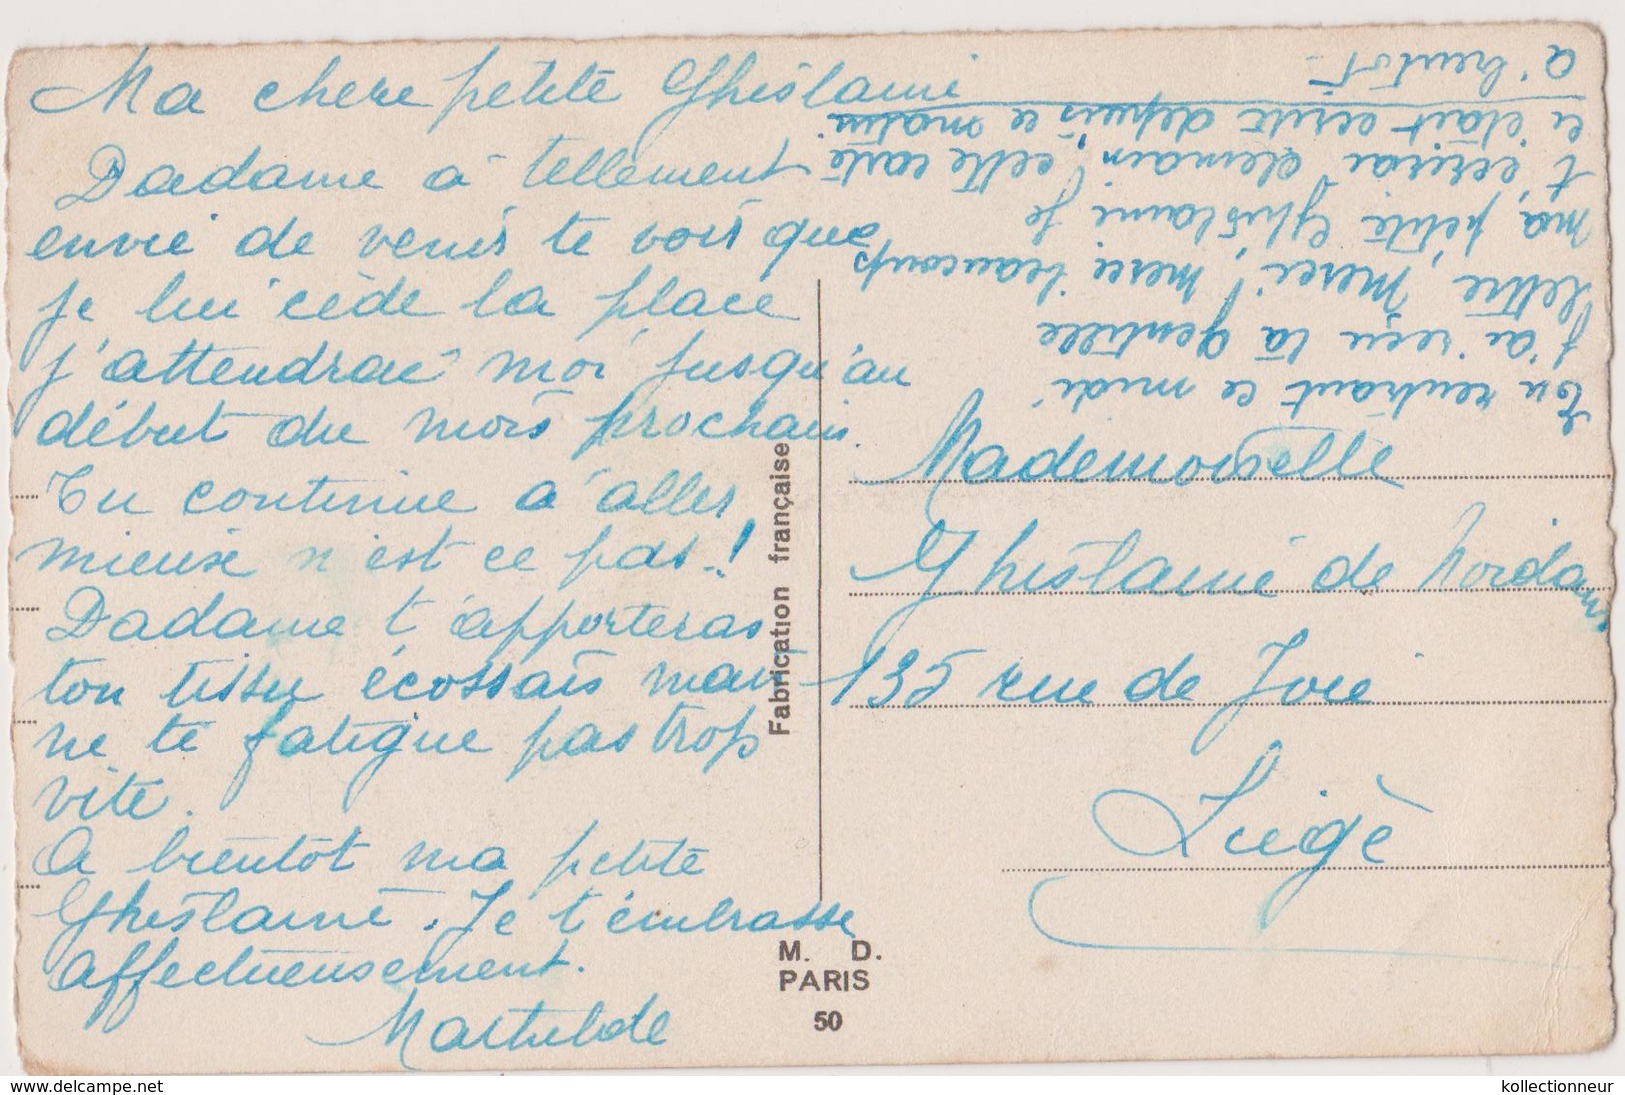 Ma chere petite Ghislaine
Dadame à tellement
envie de venir te voir que
je lui cède la place
j'attendrai moi jusqu'au
début du mois prochain.
Tu continue à aller
mieux n'est ce pas!
Dadame t'apporteras
ton tissu écossais mais
ne te fatigue pas trop
vite.
A bientôt ma petite
Ghislaine. Je t'embrasse
affectueusement.
Mathilde
En rentrant ce midi
j'ai reçu ta gentille
lettre, Merci! merci beaucoup
ma petite Ghislaine je
t'écrirai demain, cette carte
ci était écrite depuis ce matin.
à bientôt
Mademoiselle
Ghislaine de Nordans
135 rue de Joie
Liège
Fabrication française
M. D.
PARIS
50
www.delcampe.net
kollectionneur